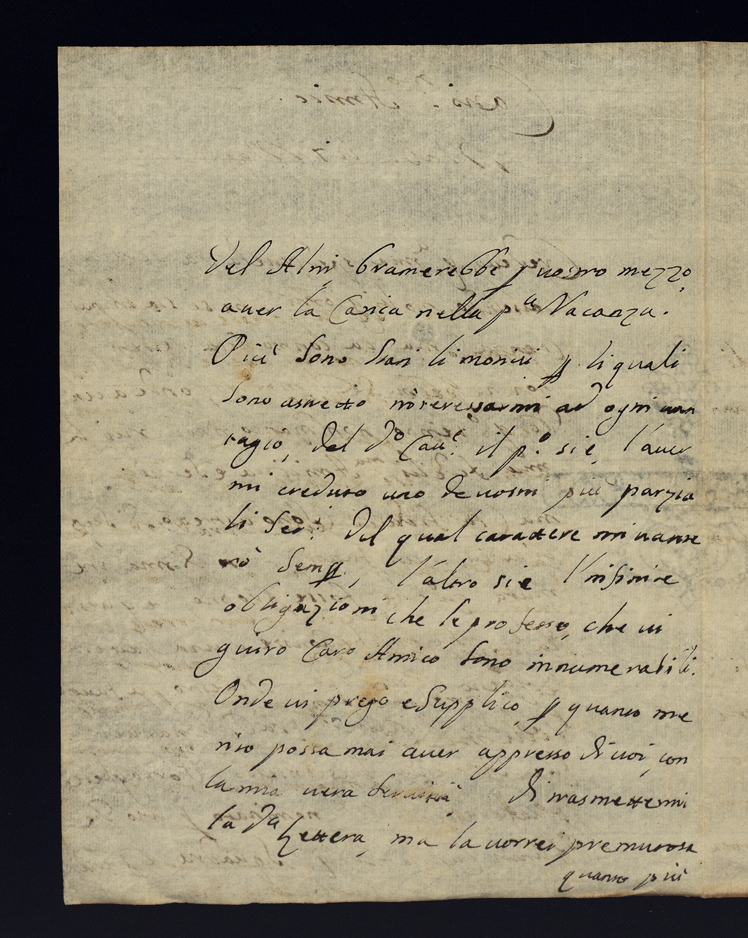 Del Alni bramerebbe p vostro mezzo,
aver la Carica nella pa Vacanza.
Più sono stan li motivi p li quali
sono astretto interessarmi ad ogni van
tagio, del do Cav.e il p.o si è, l'aver
mi creduto uno de vostri più parzia
li Ser: del qual carattere mi vante
rò Semp, l'altro si è l'infinite
obligazioni che le professo, che vi
giuro Caro Amico sono innumerabili.
Onde vi prego e Supplico, p quanto me
rito possa mai aver appresso di voi, con
la mia vera Servitù di trasmettermi
la da Lettera, ma la vorrei premurosa
quanto più